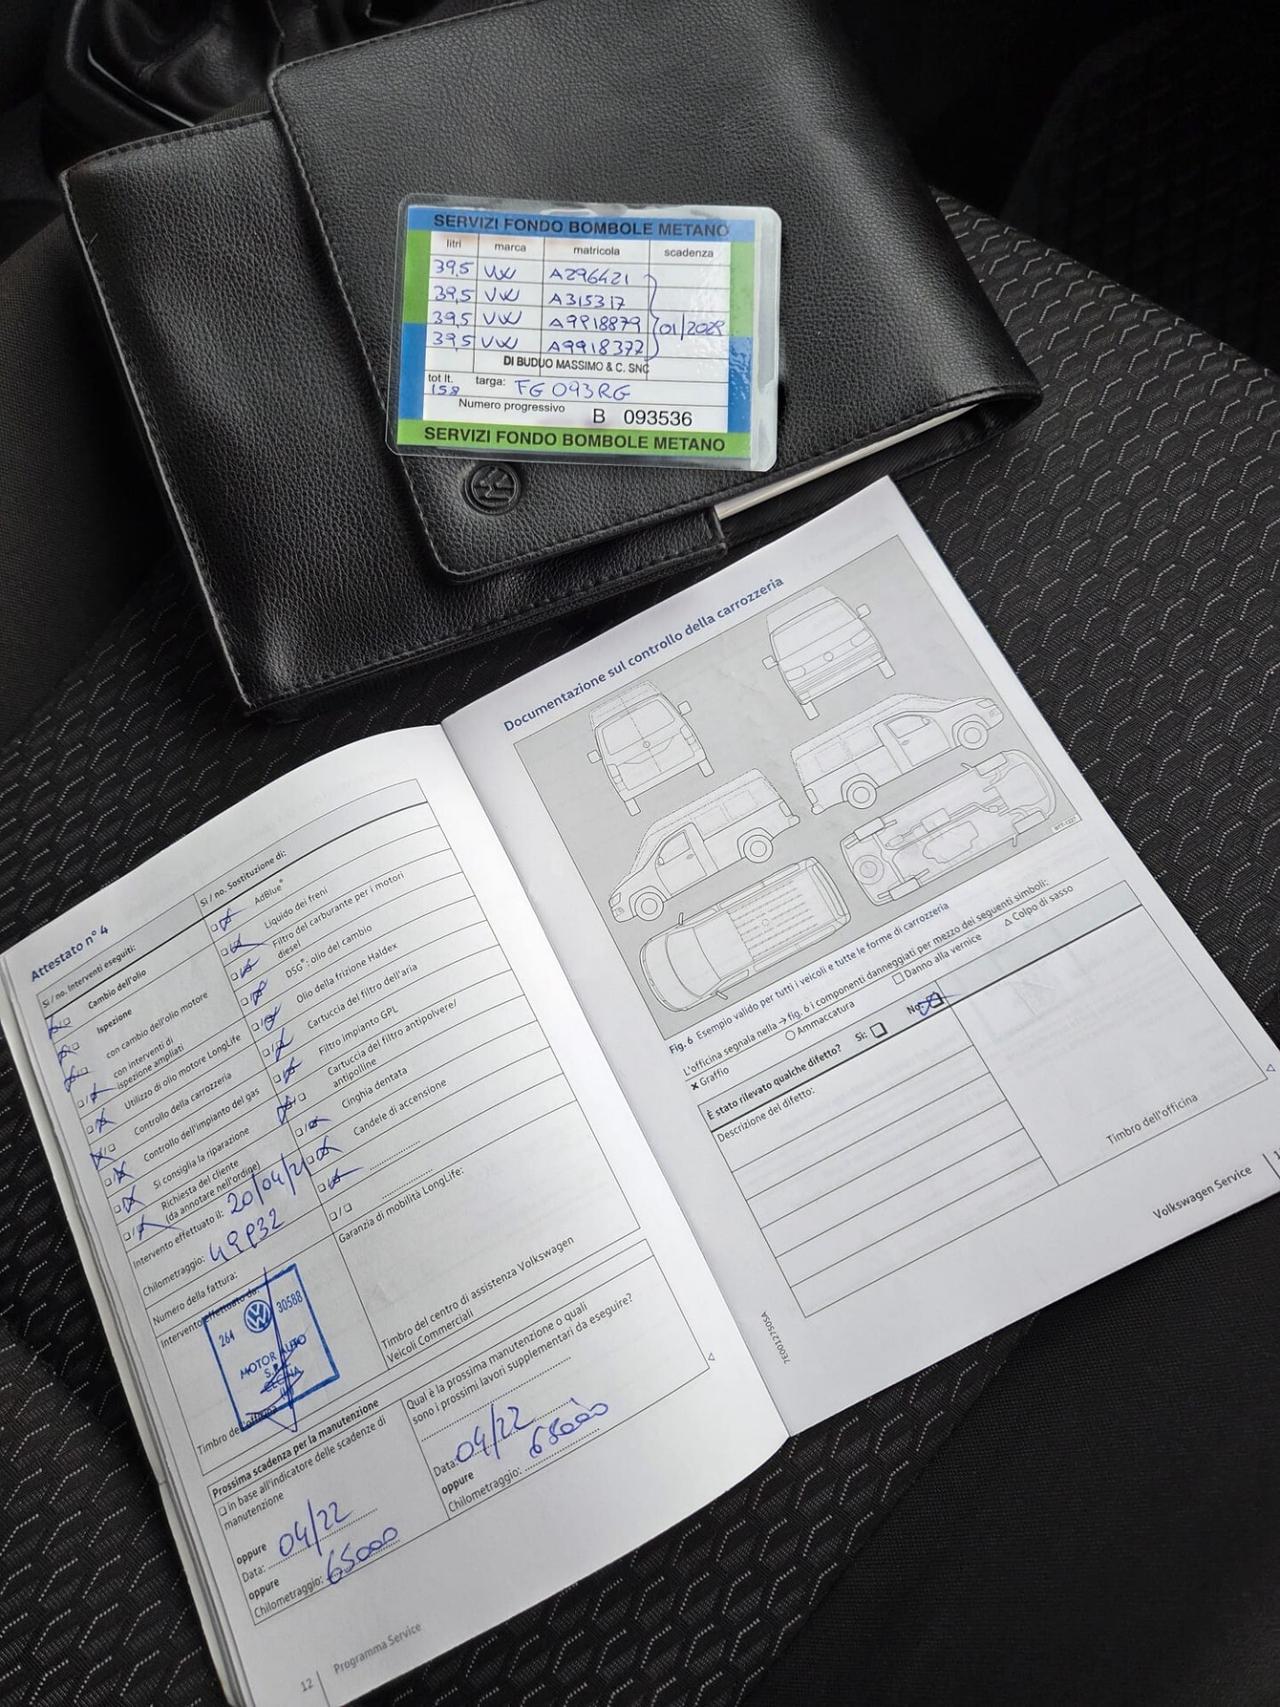 SERVIZI FONDO BOMBOLE METANO
litri marca matricola scadenza
39,5 VW A296421
39,5 VW A315317
39,5 VW A9918879 01/2029
39,5 VW A9918377
DI BUDUO MASSIMO & C. SNC
tot lt. 158 targa: FG 093RG
Numero progressivo B 093536
SERVIZI FONDO BOMBOLE METANO
Attestato n° 4
Si / no. Interventi eseguiti:
Cambio dell'olio
Ispezione
con cambio dell'olio motore
con interventi di
ispezione ampliati
Utilizzo di olio motore LongLife
Controllo della carrozzeria
Controllo dell'impianto del gas
Si consiglia la riparazione
Richiesta del cliente
(da annotare nell'ordine)
Intervento effettuato il: 20/04/21
Chilometraggio: 49932
Numero della fattura:
Intervento effettuato da:
264 30588
MOTOR AUTO
S.P.A.
Si / no. Sostituzione di:
AdBlue®
Liquido dei freni
Filtro del carburante per i motori
diesel
DSG®: olio del cambio
Olio della frizione Haldex
Cartuccia del filtro dell'aria
Filtro impianto GPL
Cartuccia del filtro antipolvere/
antipolline
Cinghia dentata
Candele di accensione
Garanzia di mobilità LongLife:
Timbro del centro di assistenza Volkswagen
Veicoli Commerciali
Prossima scadenza per la manutenzione
in base all'indicatore delle scadenze di
manutenzione
oppure
Data: 04/22
oppure
Chilometraggio: 65000
Qual è la prossima manutenzione o quali
sono i prossimi lavori supplementari da eseguire?
Data: 04/22
oppure
Chilometraggio: 65000
12 | Programma Service
Documentazione sul controllo della carrozzeria
Fig. 6 Esempio valido per tutti i veicoli e tutte le forme di carrozzeria
L'officina segnala nella → fig. 6 i componenti danneggiati per mezzo dei seguenti simboli:
✖ Graffio ○ Ammaccatura □ Danno alla vernice △ Colpo di sasso
È stato rilevato qualche difetto? Sì: No:
Descrizione del difetto:
Timbro dell'officina
7E0012750SA
Volkswagen Service